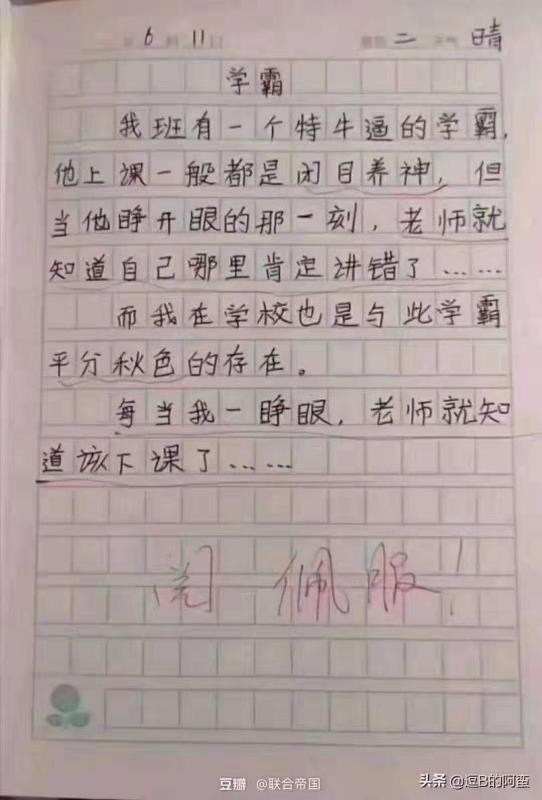 6 月 11 日 星期 二 天气 晴
学霸
我班有一个特牛逼的学霸,
他上课一般都是闭目养神,但
当他睁开眼的那一刻,老师就
知道自己哪里肯定讲错了……
而我在学校也是与此学霸
平分秋色的存在。
每当我一睁眼,老师就知
道该下课了……
阅 佩服!
豆瓣 @联合帝国
头条 @逗B的阿蛋